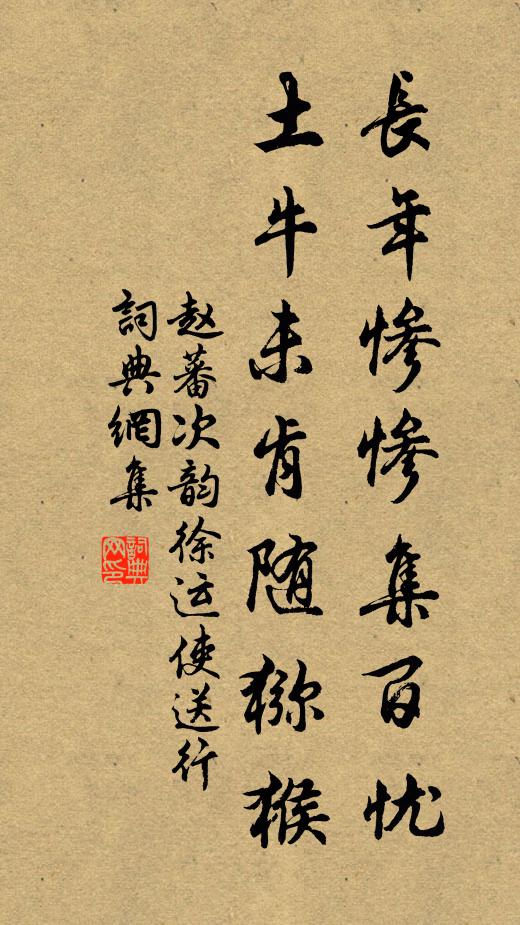 長年惨惨集百忧
土牛未肯随猕猴
赵蕃次韵徐运使送行
詞典網集
詞典网印